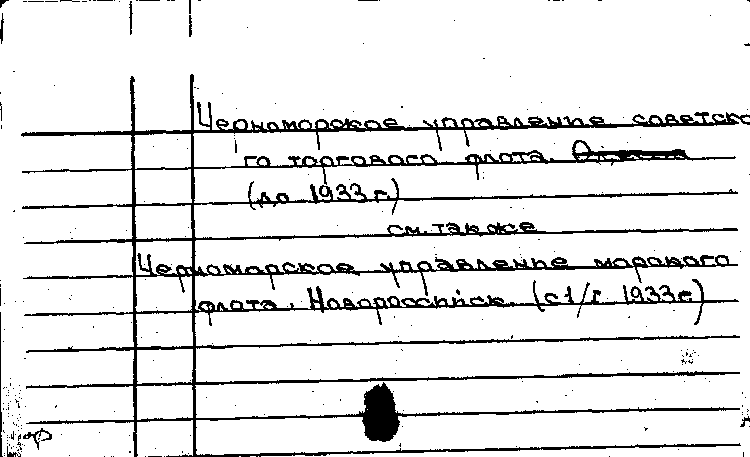 Черноморское управление советско
го торгового флота. Одесса
(до 1933 г.)
см. также
Черноморское управление морского
флота. Новороссийск. (с 1/I 1933г)